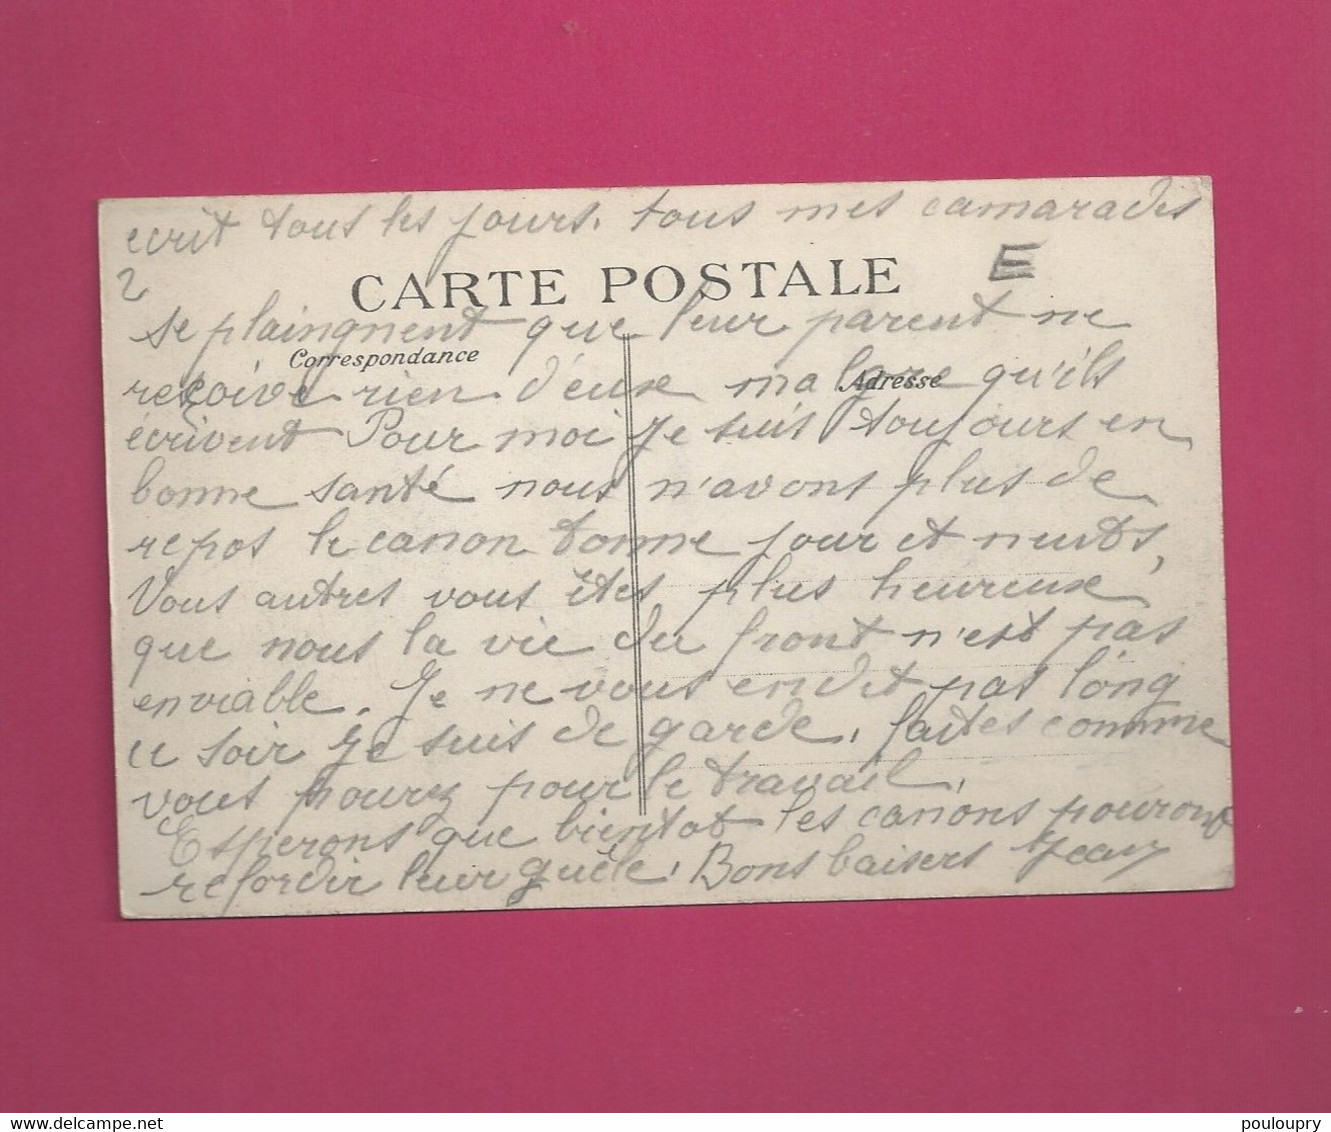 ecrit tous les jours. tous mes camarades
2
E
CARTE POSTALE
se plaingnent que leur parent ne
Correspondance
Adresse
reçoive rien d'eux malgre qu'ils
écrivent Pour moi je suis toujours en
bonne santé nous n'avons plus de
repos le canon tonne jour et nuits,
Vous autres vous êtes plus heureuse
que nous la vie du front n'est pas
enviable. Je ne vous endit pas long
ce soir je suis de garde, faites comme
vous pourez pour le travail,
Esperons que bientot les canons pouront
refordir leur guèle, Bons baisers Jean
pouloupry